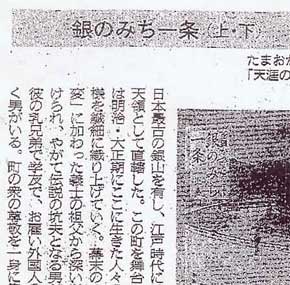 銀のみち一条(上・下)
たまおか
「天涯の
日本最古の銀山を有し、江戸時代に
天領として直轄した。この町を舞台
は明治・大正期にここに生きた人々
様を繊細に織り上げていく。幕末の
変」に加わった義士の祖父から深い
けられ、やがて伝説の坑夫となる男
彼の乳兄弟で学士で、お雇い外国人
く男がいる。町の衆の尊敬を一身に
銀のみち
一条